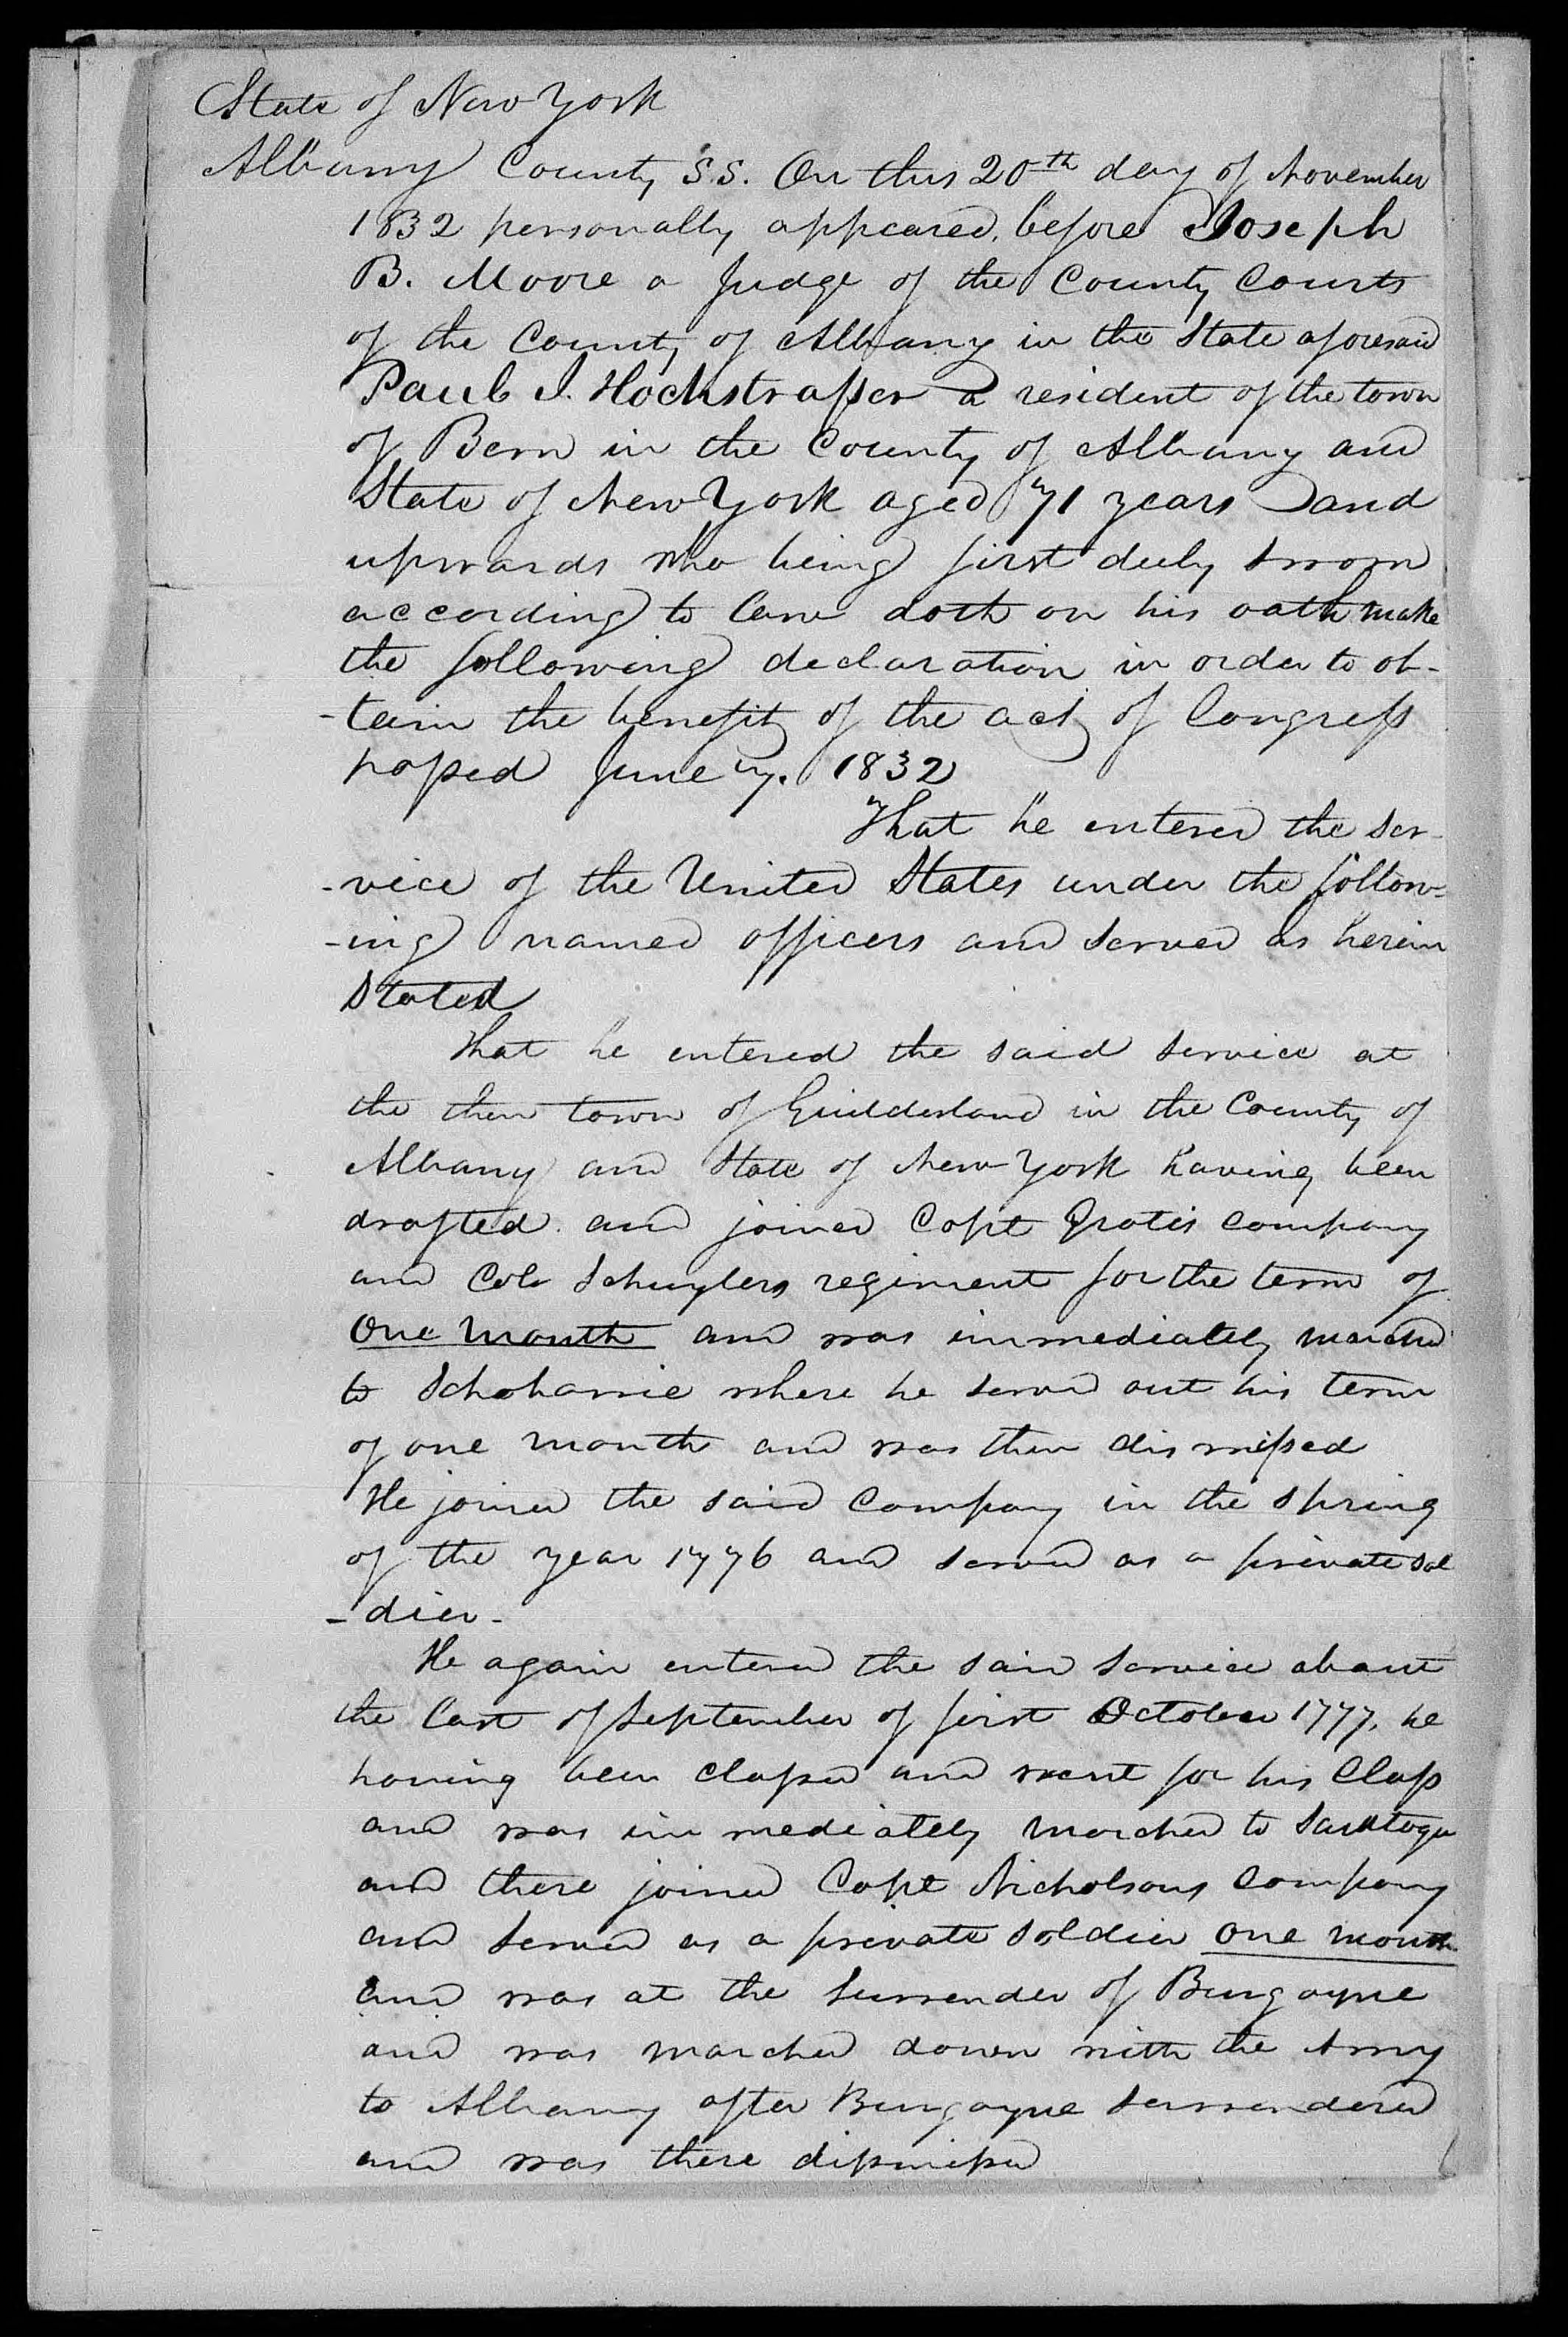 State of New York
Albany County S.S. On this 20th day of November
1832 personally appeared, before Joseph
B. Moore a Judge of the County Courts
of the County of Albany in the State aforesaid
Paul I. Hochstrasser a resident of the town
of Bern in the County of Albany and
State of New York aged 71 years and
upwards who being first duly sworn
according to law doth on his oath make
the following declaration in order to ob-
-tain the benefit of the act of Congress
passed June 7. 1832
That he entered the ser-
-vice of the United States under the follow-
-ing named officers and served as herein
Stated
That he entered the said service at
the then town of Guilderland in the County of
Albany and State of New York having been
drafted and joined Capt Grotes company
and Col Schuylers regiment for the term of
One Month and was immediately marched
to Schoharrie where he served out his term
of one month and was then dismissed
He joined the said Company in the Spring
of the year 1776 and served as a private sol
-dier-
He again entered the said service about
the last of September of first October 1777, he
having been classed and went for his Class
and was immediately marched to Saratoga
and there joined Capt Nicholsons company
and served as a private soldier one month
and was at the surrender of Burgoyne
and was marched down with the Army
to Albany after Burgoyne surrendered
and was there dismissed